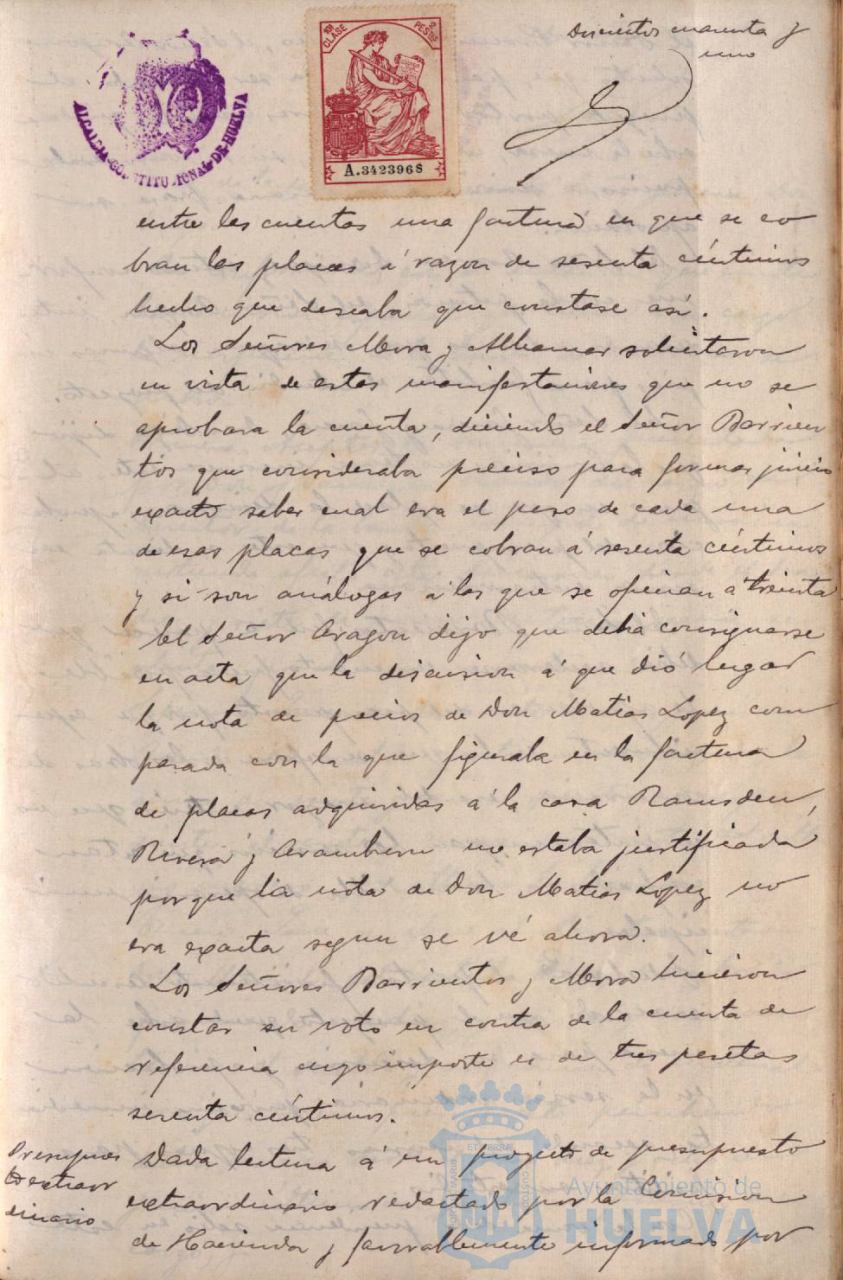 Doscientos cuarenta y
uno
10ª CLASE
2 PESETAS
A.3423968
ALCALDIA CONSTITUCIONAL DE HUELVA
entre las cuentas una factura en que se co
bran las placas á razon de sesenta céntimos
hecho que deseaba que constase así.
Los Señores Mora y Alhamar solicitaron
en vista de estas manifestaciones que no se
aprobara la cuenta, diciendo el Señor Barrien
tos que consideraba preciso para formar juicio
exacto saber cual era el peso de cada una
de esas placas que se cobran á sesenta céntimos
y si son análogas á las que se ofrecian a treinta
El Señor Aragon dijo que debia consignarse
en acta que la discusion á que dió lugar
la nota de precios de Don Matias Lopez com
parada con la que figuraba en la factura
de placas adquiridas á la casa Ramsden,
Rivera y Aramburu no estaba justificada
porque la nota de Don Matias Lopez no
era exacta segun se vé ahora.
Los Señores Barrientos y Mora hicieron
constar su voto en contra de la cuenta de
referencia cuyo importe es de tres pesetas
sesenta céntimos.
Presupues
to extraor
dinario
Dada lectura á un proyecto de presupuesto
extraordinario redactado por la Comision
de Hacienda y favorablemente informado por
Ayuntamiento de
HUELVA